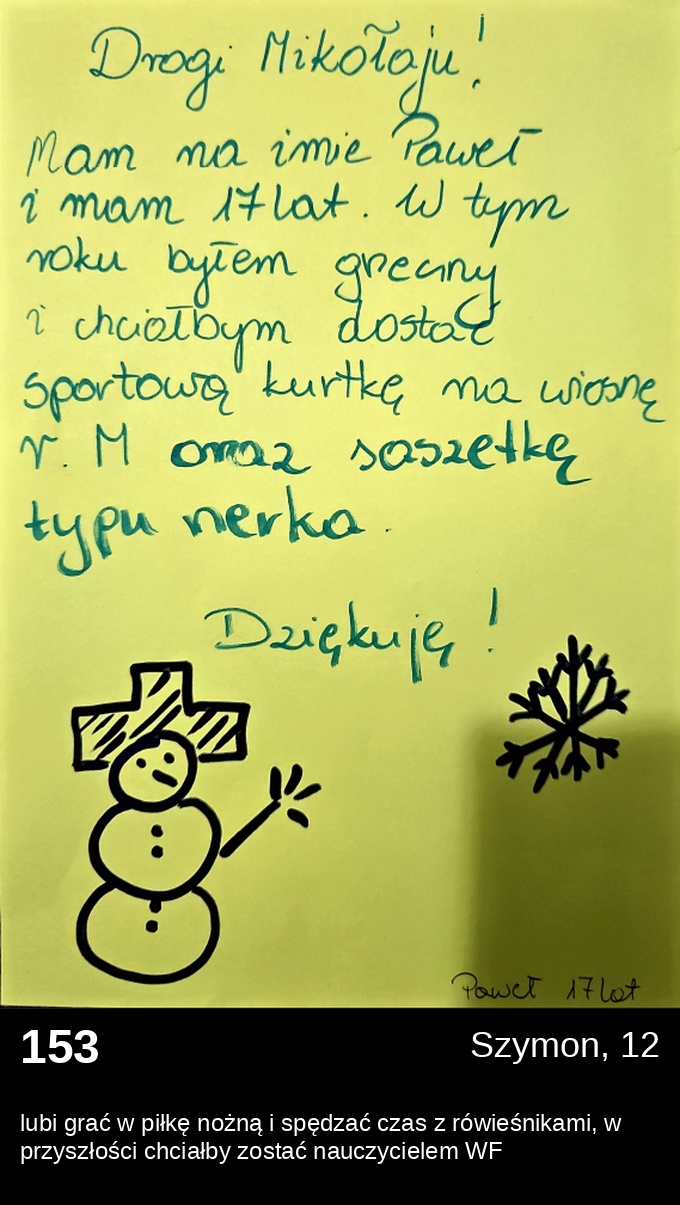 Drogi Mikołaju!
Mam na imie Paweł
i mam 17 lat. W tym
roku byłem grecny
i chciałbym dostać
sportową kurtkę na wiosnę
r. M oraz saszetkę
typu nerka.
Dziękuję!
Paweł 17 lat
153
Szymon, 12
lubi grać w piłkę nożną i spędzać czas z rówieśnikami, w
przyszłości chciałby zostać nauczycielem WF